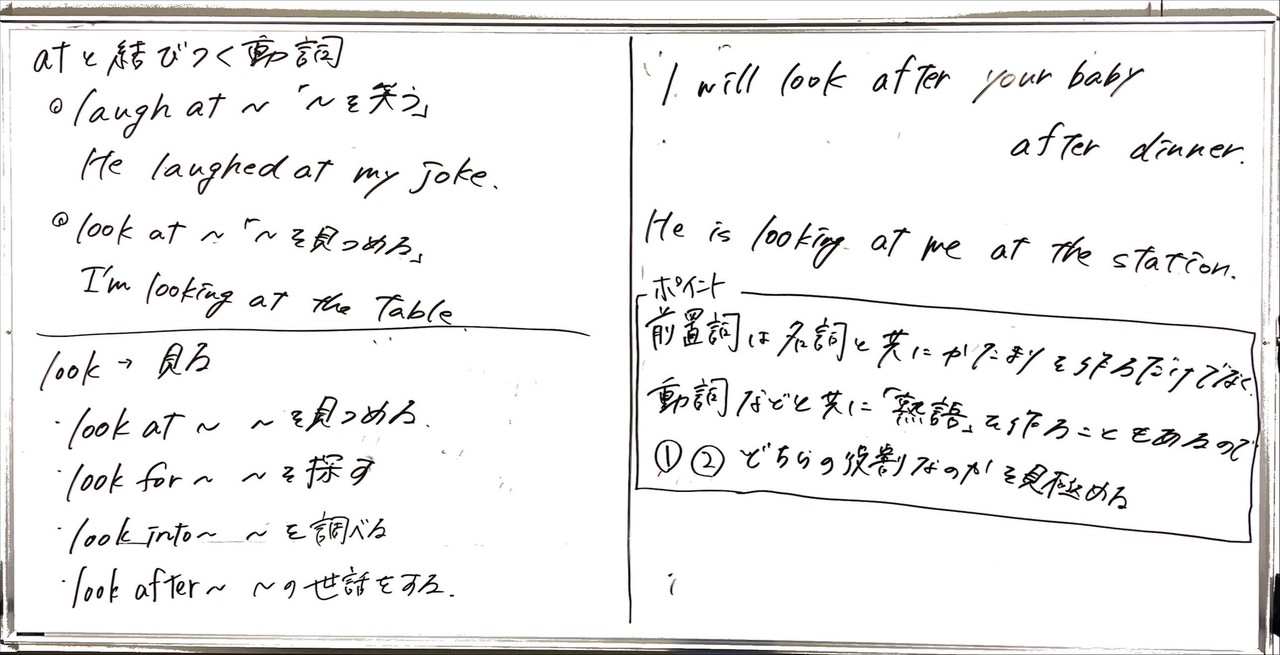 atと結びつく動詞
◎laugh at ~ 「~を笑う」
He laughed at my joke.
◎look at ~ 「~を見つめる」
I'm looking at the table
look → 見る
・look at ~ ~を見つめる.
・look for ~ ~を探す
・look into ~ ~を調べる
・look after ~ ~の世話をする.
I will look after your baby
after dinner.
He is looking at me at the station.
ポイント
前置詞は名詞と共にかたまりを作るだけでなく
動詞などと共に「熟語」を作ることもあるので
①②どちらの役割なのかを見極める